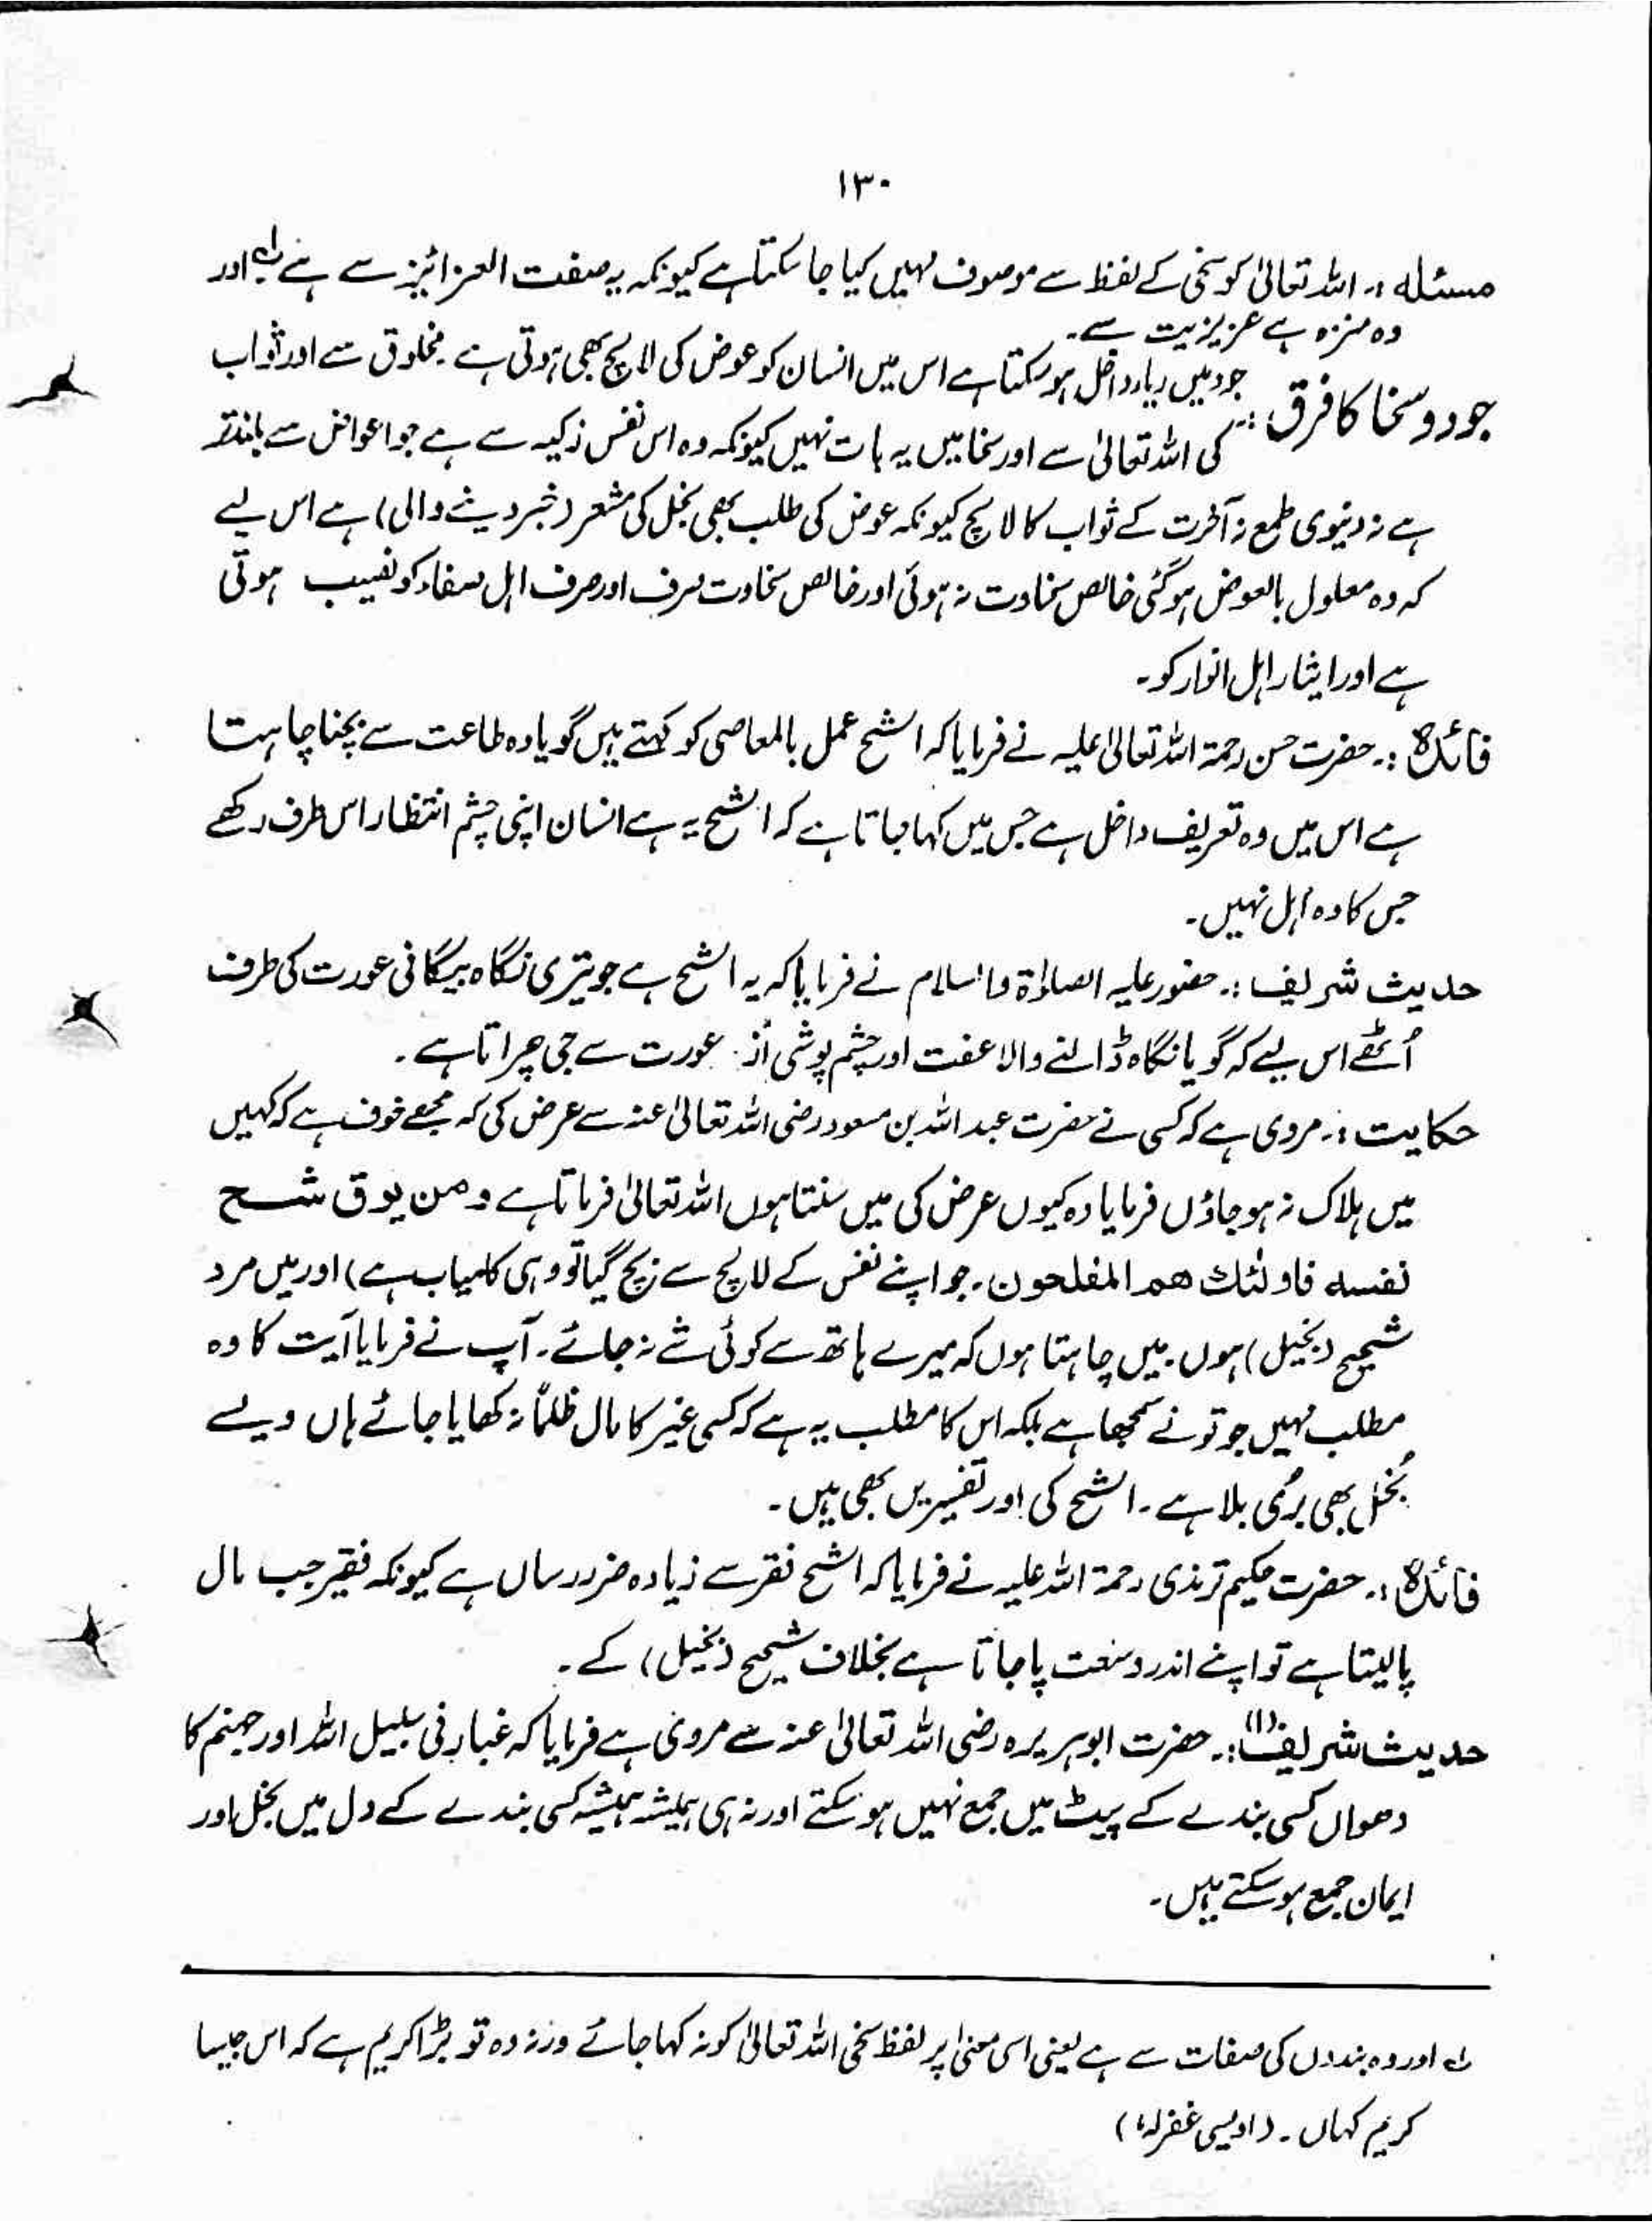 ۱۳۰
مسئلہ :۔ اللہ تعالیٰ کو سخی کے لفظ سے موصوف نہیں کیا جا سکتا ہے کیونکہ یہ صفت العزائیز سے ہے لہ اور
وہ منزہ ہے عزیزیت سے۔
جود و سخا کا فرق :۔ جود میں ریار داخل ہو سکتا ہے اس میں انسان کو عوض کی لالچ بھی ہوتی ہے۔ مخلوق سے اور ثواب
کی اللہ تعالیٰ سے اور سخا میں یہ بات نہیں کیونکہ وہ اس نفس زکیہ سے ہے جو اعواض سے بلند تر
ہے نہ دنیوی طمع نہ آخرت کے ثواب کا لالچ کیونکہ عوض کی طلب بھی بخل کی مشعر (خبر دینے والی) ہے اس لیے
کہ وہ معلول بالعوض ہو گئی خالص سخاوت نہ ہوئی اور خالص سخاوت صرف اور صرف اہل صفاء کو نصیب ہوتی
ہے اور ایثار اہل انوار کو۔
فائدہ :۔ حضرت حسن رحمۃ اللہ تعالیٰ علیہ نے فرمایا کہ الشح عمل بالمعاصی کو کہتے ہیں گویا وہ طاعت سے بچنا چاہتا
ہے اس میں وہ تعریف داخل ہے جس میں کہا جاتا ہے کہ الشح یہ ہے انسان اپنی چشم انتظار اس طرف رکھے
جس کا وہ اہل نہیں۔
حدیث شریف :۔ حضور علیہ الصلوٰۃ والسلام نے فرمایا کہ یہ الشح ہے جو تیری نگاہ بیگانی عورت کی طرف
اُٹھے اس لیے کہ گویا نگاہ ڈالنے والا عفت اور چشم پوشی از عورت سے جی چراتا ہے۔
حکایت :۔ مروی ہے کہ کسی نے حضرت عبد اللہ بن مسعود رضی اللہ تعالیٰ عنہ سے عرض کی کہ مجھے خوف ہے کہ کہیں
میں ہلاک نہ ہو جاؤں فرمایا وہ کیوں عرض کی میں سنتا ہوں اللہ تعالیٰ فرماتا ہے ومن یوق شح
نفسہ فاولئک ھم المفلحون۔ جو اپنے نفس کے لالچ سے بچ گیا تو وہی کامیاب ہے) اور میں مرد
شحیح (بخیل) ہوں۔ میں چاہتا ہوں کہ میرے ہاتھ سے کوئی شے نہ جائے۔ آپ نے فرمایا آیت کا وہ
مطلب نہیں جو تو نے سمجھا ہے بلکہ اس کا مطلب یہ ہے کہ کسی غیر کا مال ظلماً نہ کھایا جائے ہاں ویسے
بُخل بھی بُری بلا ہے۔ الشح کی اور تفسیریں بھی ہیں۔
فائدہ :۔ حضرت حکیم ترمذی رحمۃ اللہ علیہ نے فرمایا کہ الشح فقر سے زیادہ ضرر رساں ہے کیونکہ فقیر جب مال
پا لیتا ہے تو اپنے اندر وسعت پا جاتا ہے بخلاف شحیح (بخیل) کے۔
حدیث شریف (۱) :۔ حضرت ابوہریرہ رضی اللہ تعالیٰ عنہ سے مروی ہے فرمایا کہ غبار فی سبیل اللہ اور جہنم کا
دھواں کسی بندے کے پیٹ میں جمع نہیں ہو سکتے اور نہ ہی ہمیشہ ہمیشہ کسی بندے کے دل میں بخل اور
ایمان جمع ہو سکتے ہیں۔
لہ اور وہ بندوں کی صفات سے ہے یعنی اسی معنیٰ پر لفظ سخی اللہ تعالیٰ کو نہ کہا جائے ورنہ وہ تو بڑا کریم ہے کہ اس جیسا
کریم کہاں۔ (اویسی غفرلہٗ)